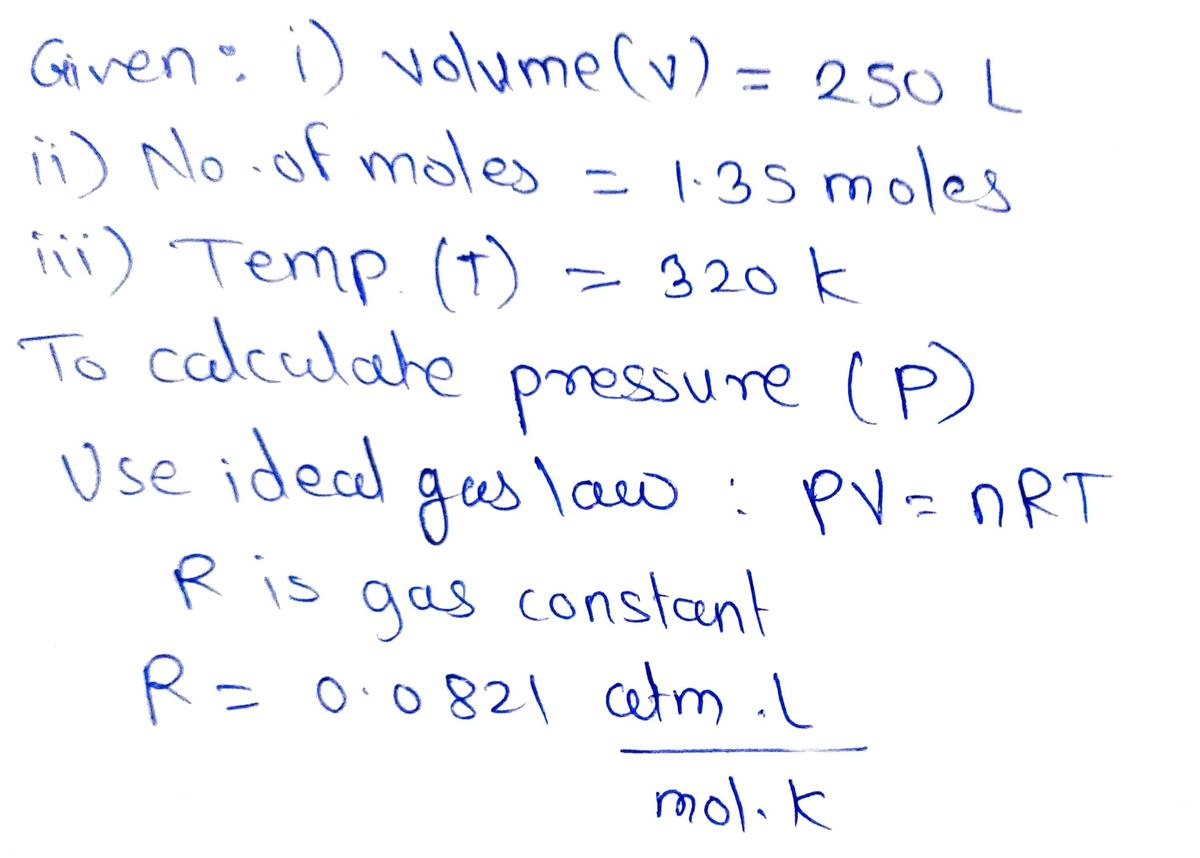 Given : i) volume (v) = 250 L
ii) No. of moles = 1.35 moles
iii) Temp. (T) = 320 k
To calculate pressure (P)
Use ideal gas law : PV = nRT
R is gas constant
R = 0.0821 atm . L
mol. K